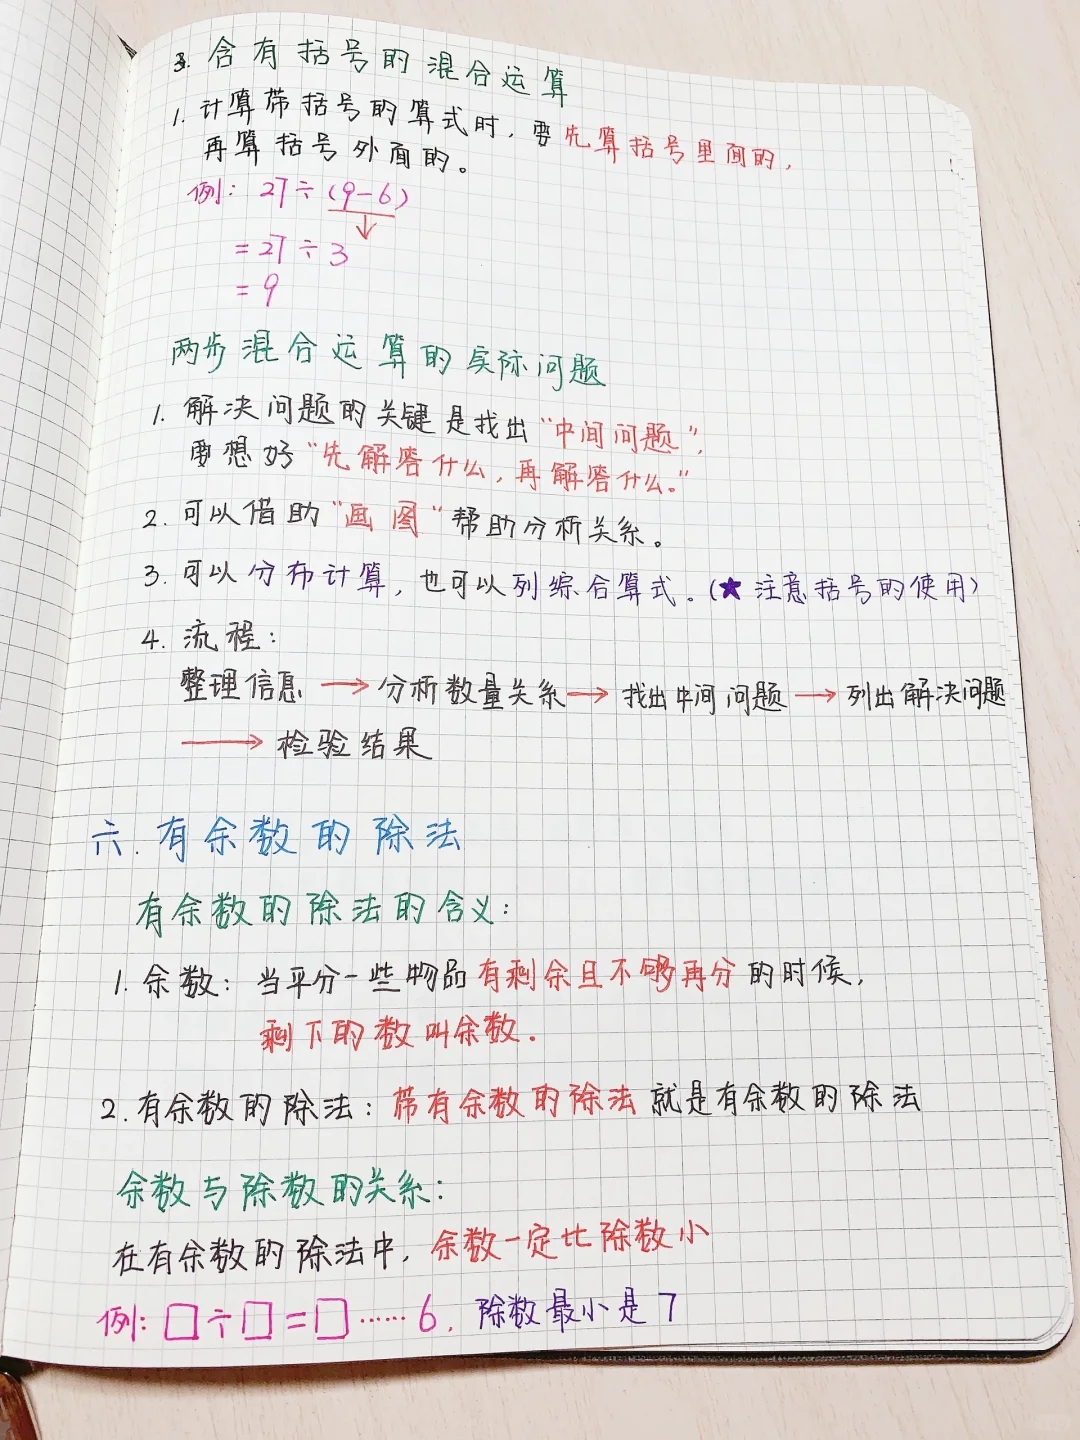 3. 含有括号的混合运算
1. 计算带括号的算式时，要先算括号里面的，
再算括号外面的。
例：27÷(9-6)
=27÷3
=9
两步混合运算的实际问题
1. 解决问题的关键是找出“中间问题”，
要想好“先解答什么，再解答什么。”
2. 可以借助“画图”帮助分析关系。
3. 可以分布计算，也可以列综合算式。(★注意括号的使用)
4. 流程：
整理信息→分析数量关系→找出中间问题→列出解决问题
→检验结果
六. 有余数的除法
有余数的除法的含义：
1. 余数：当平分一些物品有剩余且不够再分的时候，
剩下的数叫余数.
2. 有余数的除法：带有余数的除法就是有余数的除法
余数与除数的关系：
在有余数的除法中，余数一定比除数小
例：□÷□=□……6. 除数最小是7